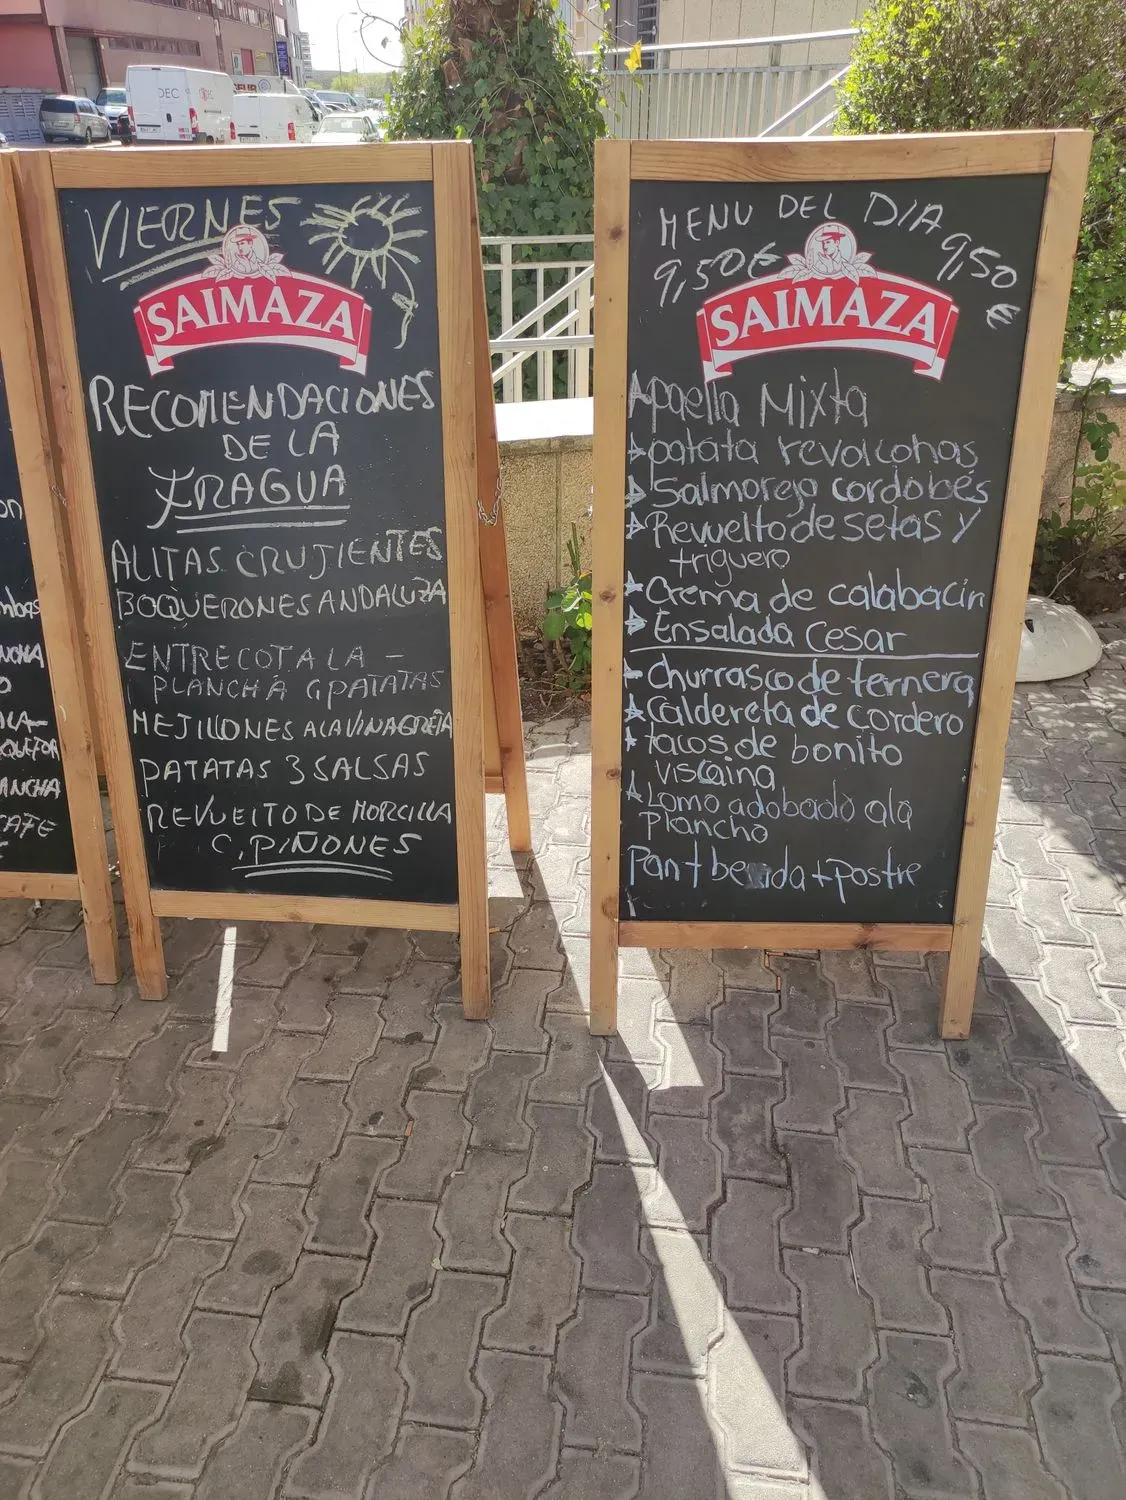 DEC
VIERNES
SAIMAZA
RECOMENDACIONES
DE LA
FRAGUA
ALITAS CRUJIENTES
BOQUERONES ANDALUZA
ENTRECOT A LA -
PLANCHA C PATATAS
MEJILLONES A LA VINAGRETA
PATATAS 3 SALSAS
REVUELTO DE MORCILLA
C, PIÑONES
MENU DEL DIA
9,50€
9,50
€
SAIMAZA
paella Mixta
patata revolconas
Salmorejo cordobés
Revuelto de setas y
triguero
Crema de calabacin
Ensalada Cesar
Churrasco de ternera
Caldereta de cordero
tacos de bonito
viscaina
Lomo adobado a la
plancha
pan + bebida + postre
ANCHA
CAFE